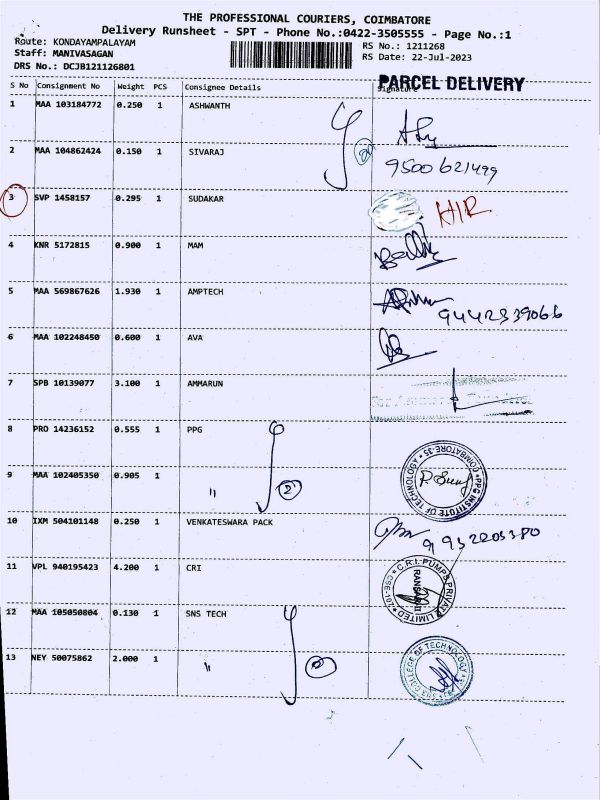 THE PROFESSIONAL COURIERS, COIMBATORE
Delivery Runsheet - SPT - Phone No.:0422-3505555 - Page No.:1
Route: KONDAYAMPALAYAM RS No.: 1211268
Staff: MANIVASAGAN RS Date: 22-Jul-2023
DRS No.: DCJB121126801 PARCEL DELIVERY
S No Consignment No Weight PCS Consignee Details Signature
1 MAA 103184772 0.250 1 ASHWANTH
2 MAA 104862424 0.150 1 SIVARAJ 9500621499
3 SVP 1458157 0.295 1 SUDAKAR
4 KNR 5172815 0.900 1 MAM
5 MAA 569867626 1.930 1 AMPTECH 9442339066
6 MAA 102248450 0.600 1 AVA
7 SPB 10139077 3.100 1 AMMARUN
8 PRO 14236152 0.555 1 PPG
PPG INSTITUTE OF TECHNOLOGY COIMBATORE-35
9 MAA 102405350 0.905 1 " 2
10 IXM 504101148 0.250 1 VENKATESWARA PACK
11 VPL 940195423 4.200 1 CRI
C.R.I. PUMPS PRIVATE LIMITED
12 MAA 105050804 0.130 1 SNS TECH
13 NEY 50075862 2.000 1 "
COLLEGE OF TECHNOLOGY